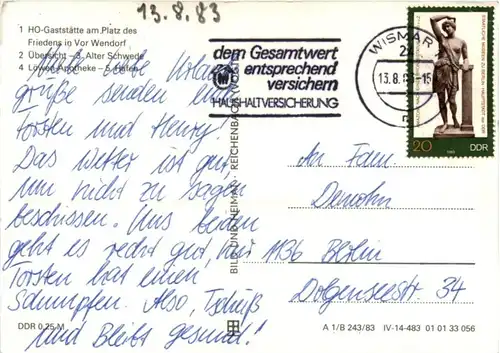 13.8.83
1 HO-Gaststätte am Platz des
Friedens in Vor Wendorf
2 Übersicht — 3 Alter Schwede
4 Löwen-Apotheke — 5 Hafen
liebe Urlaubs-
grüße senden euch
Torsten und Henry!
Das Wetter ist gut
um nicht zu sagen
beschissen. Uns beiden
geht es recht gut, nur
Torsten hat einen
Schnupfen. Also, Tschüß
und Bleibt gesund!
DDR 0,25 M
BILD UND HEIMAT REICHENBACH (VOGTL)
dem Gesamtwert
entsprechend
versichern
HAUSHALTVERSICHERUNG
WISMAR
13.8.83-15
20
DDR
1983
An Fam.
1136 Berlin
Dolgenseestr. 34
A 1/B 243/83 IV-14-483 01 01 33 056